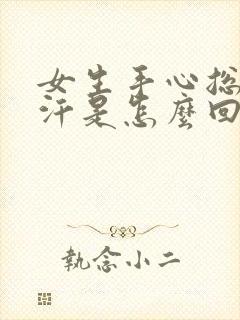 女生手心总
汗是怎麼回
執念小二